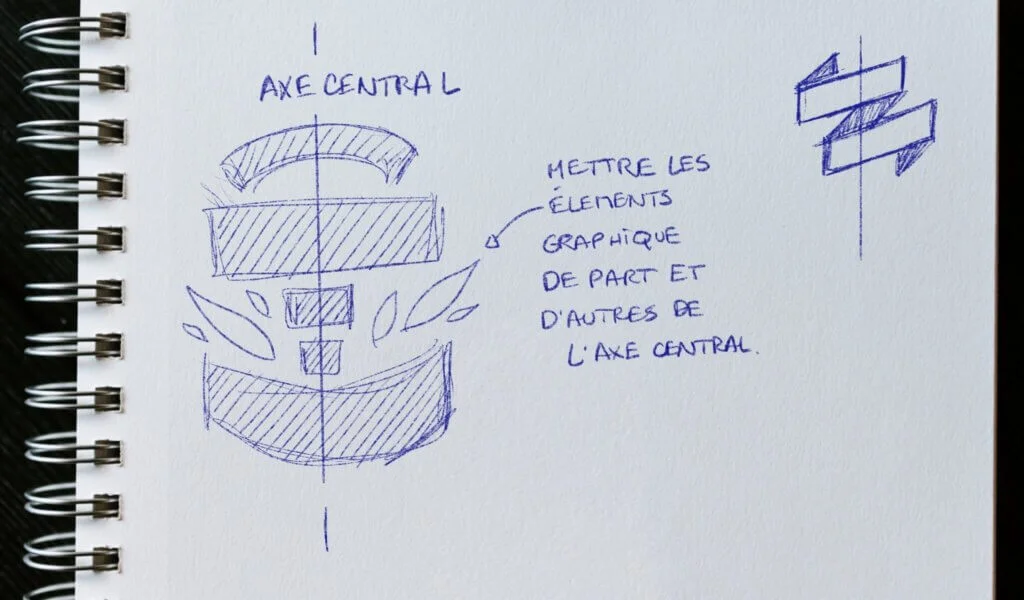 AXE CENTRAL
METTRE LES
ÉLEMENTS
GRAPHIQUE
DE PART ET
D'AUTRES DE
L'AXE CENTRAL.